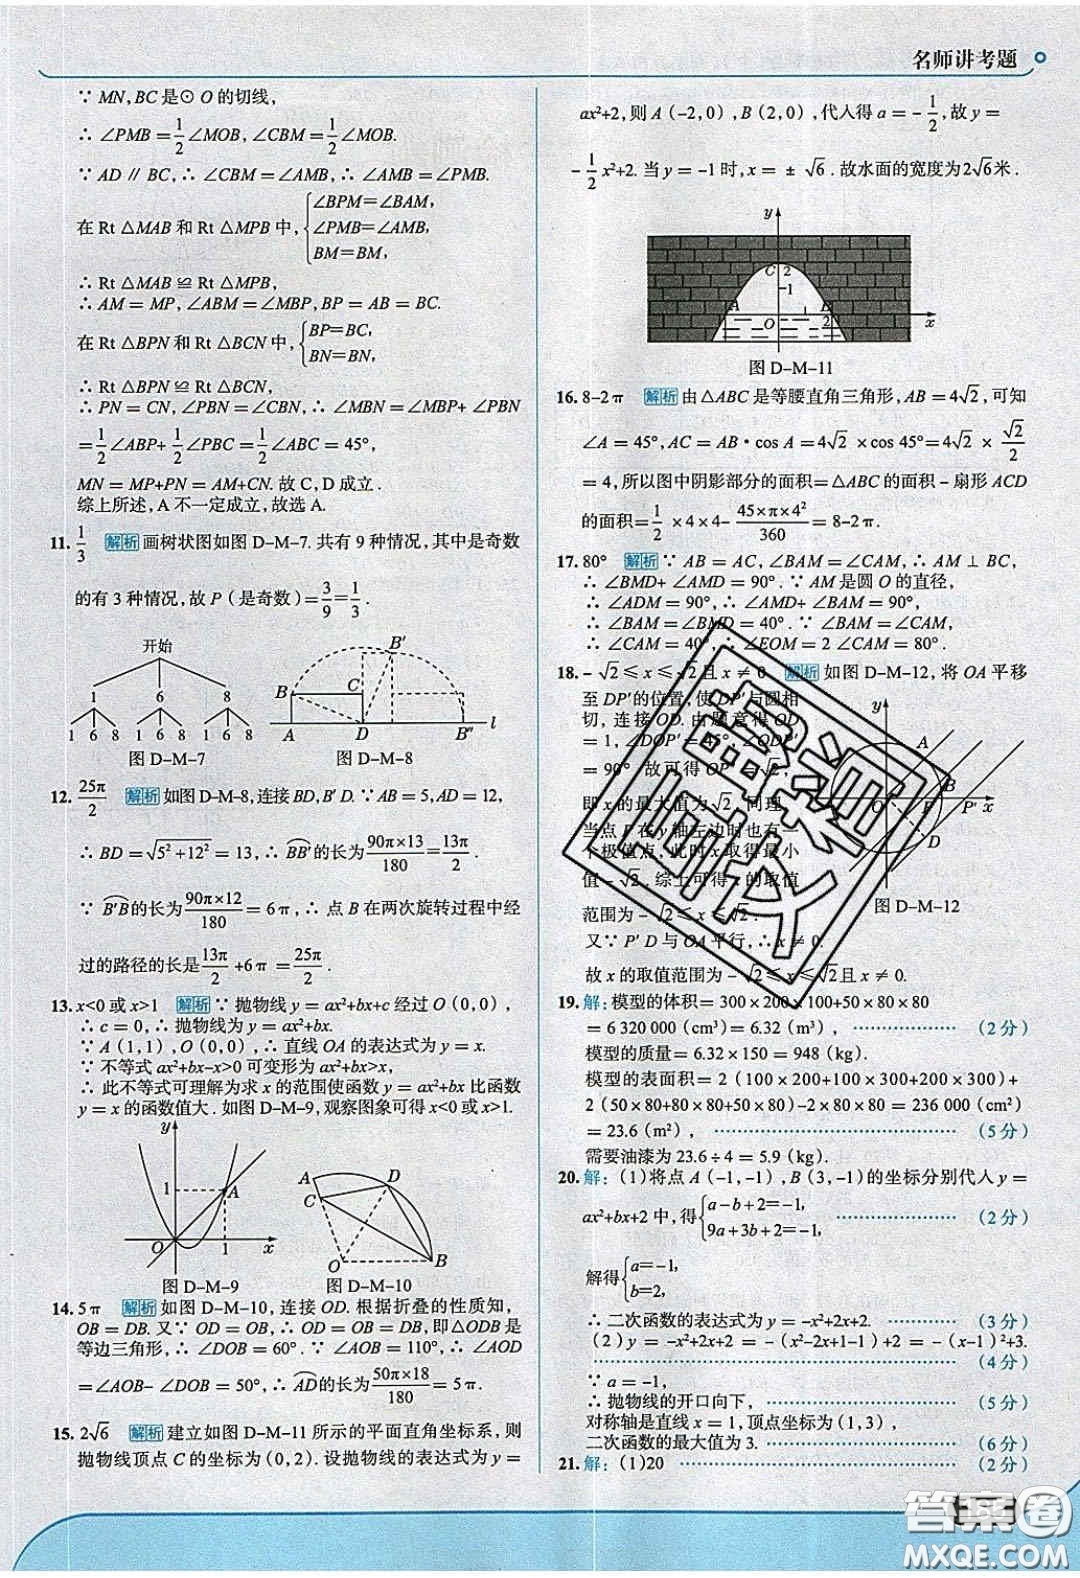 名师讲考题
∵ MN,BC是⊙ O的切线,
∴ ∠PMB=1/2∠MOB, ∠CBM=1/2∠MOB.
∵ AD // BC, ∴ ∠CBM=∠AMB, ∴ ∠AMB=∠PMB.
在 Rt △MAB 和 Rt △MPB 中, {∠BPM=∠BAM,
∠PMB=∠AMB,
BM=BM,
∴ Rt △MAB ≌ Rt △MPB,
∴ AM=MP, ∠ABM=∠MBP, BP=AB=BC.
在 Rt △BPN 和 Rt △BCN 中, {BP=BC,
BN=BN,
∴ Rt △BPN ≌ Rt △BCN,
∴ PN=CN, ∠PBN=∠CBN, ∴ ∠MBN=∠MBP+∠PBN
=1/2∠ABP+1/2∠PBC=1/2∠ABC=45°,
MN=MP+PN=AM+CN.故C,D成立.
综上所述,A不一定成立,故选A.
11. 1/3 解析 画树状图如图 D-M-7.共有9种情况,其中是奇数
的有3种情况,故P(是奇数)=3/9=1/3.
开始
1 6 8
1 6 8 1 6 8 1 6 8
图 D-M-7
B' B C A D B'' l
图 D-M-8
12. 25π/2 解析 如图 D-M-8,连接BD,B'D.∵AB=5,AD=12,
∴ BD=√(5²+12²)=13, ∴ BB'的长为90π×13/180=13π/2.
∵ B'B''的长为90π×12/180=6π, ∴ 点B在两次旋转过程中经
过的路径的长是13π/2+6π=25π/2.
13. x<0或x>1 解析 ∵ 抛物线y=ax²+bx+c经过O(0,0),
∴ c=0, ∴ 抛物线为y=ax²+bx.
∵ A(1,1),O(0,0), ∴ 直线OA的表达式为y=x.
∵ 不等式ax²+bx-x>0可变形为ax²+bx>x,
∴ 此不等式可理解为求x的范围使函数y=ax²+bx比函数
y=x的函数值大.如图 D-M-9,观察图象可得x<0或x>1.
y 1 A O 1 x
图 D-M-9
A D C O B
图 D-M-10
14. 5π 解析 如图 D-M-10,连接OD.根据折叠的性质知,
OB=DB.又∵ OD=OB, ∴ OD=OB=DB,即△ODB是
等边三角形, ∴ ∠DOB=60°.∵ ∠AOB=110°, ∴ ∠AOD
=∠AOB-∠DOB=50°, ∴ AD的长为50π×18/180=5π.
15. 2√6 解析 建立如图 D-M-11所示的平面直角坐标系,则
抛物线顶点C的坐标为(0,2).设抛物线的表达式为y=
ax²+2,则A(-2,0),B(2,0),代入得a=-1/2,故y=
-1/2x²+2.当y=-1时,x=±√6.故水面的宽度为2√6米.
y C 2 1 A B O 2 x
图 D-M-11
16. 8-2π 解析 由△ABC是等腰直角三角形,AB=4√2,可知
∠A=45°,AC=AB·cos A=4√2×cos 45°=4√2×√2/2
=4,所以图中阴影部分的面积=△ABC的面积-扇形ACD
的面积=1/2×4×4-45×π×4²/360=8-2π.
17. 80° 解析 ∵ AB=AC, ∠BAM=∠CAM, ∴ AM⊥BC,
∴ ∠BMD+∠AMD=90°.∵ AM是圆O的直径,
∴ ∠ADM=90°, ∴ ∠AMD+∠BAM=90°,
∴ ∠BAM=∠BMD=40°.∵ ∠BAM=∠CAM,
∴ ∠CAM=40°, ∴ ∠EOM=2∠CAM=80°.
18. -√2≤x≤√2且x≠0 解析 如图 D-M-12,将OA平移
至DP'的位置,使DP'与圆相
切,连接OD.由题意得OD
=1,∠DOP'=45°,∠ODP'
=90°,故可得OP'=√2,
即x的最大值为√2.同理,
当点P在y轴左边时也有一
个极值点,此时x取得最小
值-√2.综上可得x的取值
范围为-√2≤x≤√2.
又∵ P'D与OA平行, ∴ x≠0.
故x的取值范围为-√2≤x≤√2且x≠0.
y A B O P P' x D
图 D-M-12
19. 解:模型的体积=300×200×100+50×80×80
=6 320 000 (cm³)=6.32 (m³), (2分)
模型的质量=6.32×150=948 (kg).
模型的表面积=2(100×200+100×300+200×300)+
2(50×80+80×80+50×80)-2×80×80=236 000 (cm²)
=23.6 (m²), (5分)
需要油漆为23.6÷4=5.9 (kg).
20. 解:(1)将点A(-1,-1),B(3,-1)的坐标分别代入y=
ax²+bx+2中,得{a-b+2=-1,
9a+3b+2=-1, (2分)
解得{a=-1,
b=2,
∴ 二次函数的表达式为y=-x²+2x+2. (3分)
(2)y=-x²+2x+2=-(x²-2x+1-1)+2=-(x-1)²+3.
(4分)
∵ a=-1,
∴ 抛物线的开口向下, (5分)
对称轴是直线x=1,顶点坐标为(1,3),
二次函数的最大值为3. (6分)
21. 解:(1)20 (2分)
答案卷
MXQE.COM